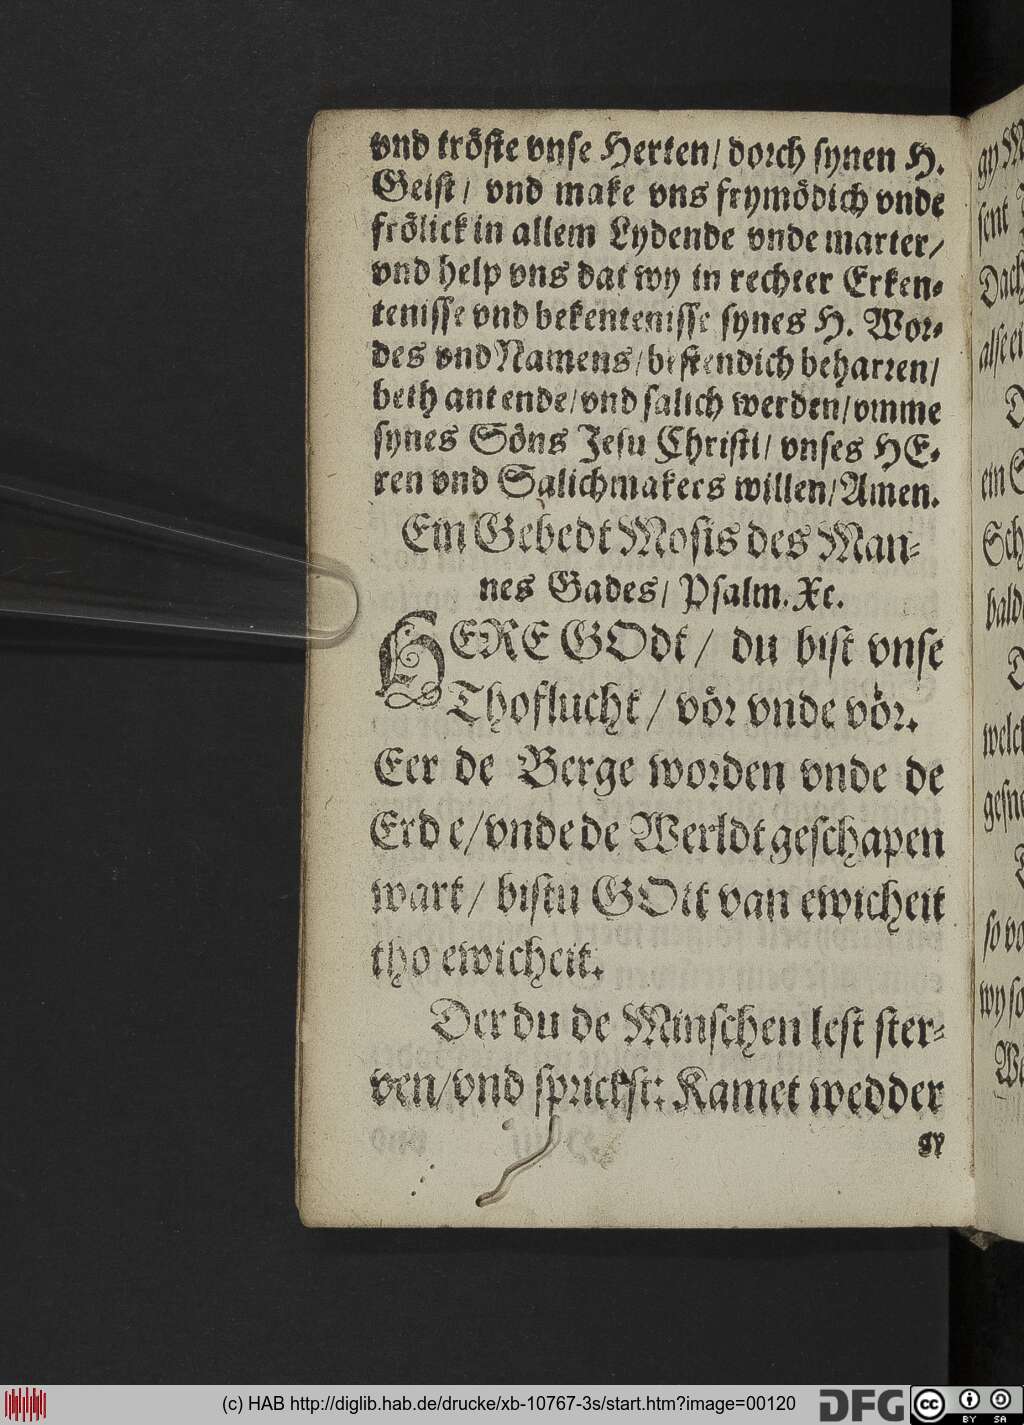 vnd tröste vnse Herten/ dorch synen H.
Geist/ vnd make vns frymödich vnde
frölick in allem Lydende vnde marter/
vnd help vns dat wy in rechter Erken-
tenisse vnd bekentenisse synes H. Wor-
des vnd Namens/ bestendich beharren/
beth ant ende/ vnd salich werden/ vmme
synes Söns Jesu Christi/ vnses HE-
ren vnd Salichmakers willen/ Amen.
Ein Gebedt Mosis des Man-
nes Gades/ Psalm. Xc.
HERE GOdt/ du bist vnse
Thoflucht/ vör vnde vör.
Eer de Berge worden vnde de
Erde/ vnde de Werldt geschapen
wart/ bistu GOtt van ewicheit
tho ewicheit.
Der du de Minschen lest ster-
ven/ vnd sprickst: Kamet wedder
gy
gy
sent
Dach
alse
ein
Sch
bald
welch
gesne
so vo
wy so
(c) HAB http://diglib.hab.de/drucke/xb-10767-3s/start.htm?image=00120
DFG
cc
BY SA